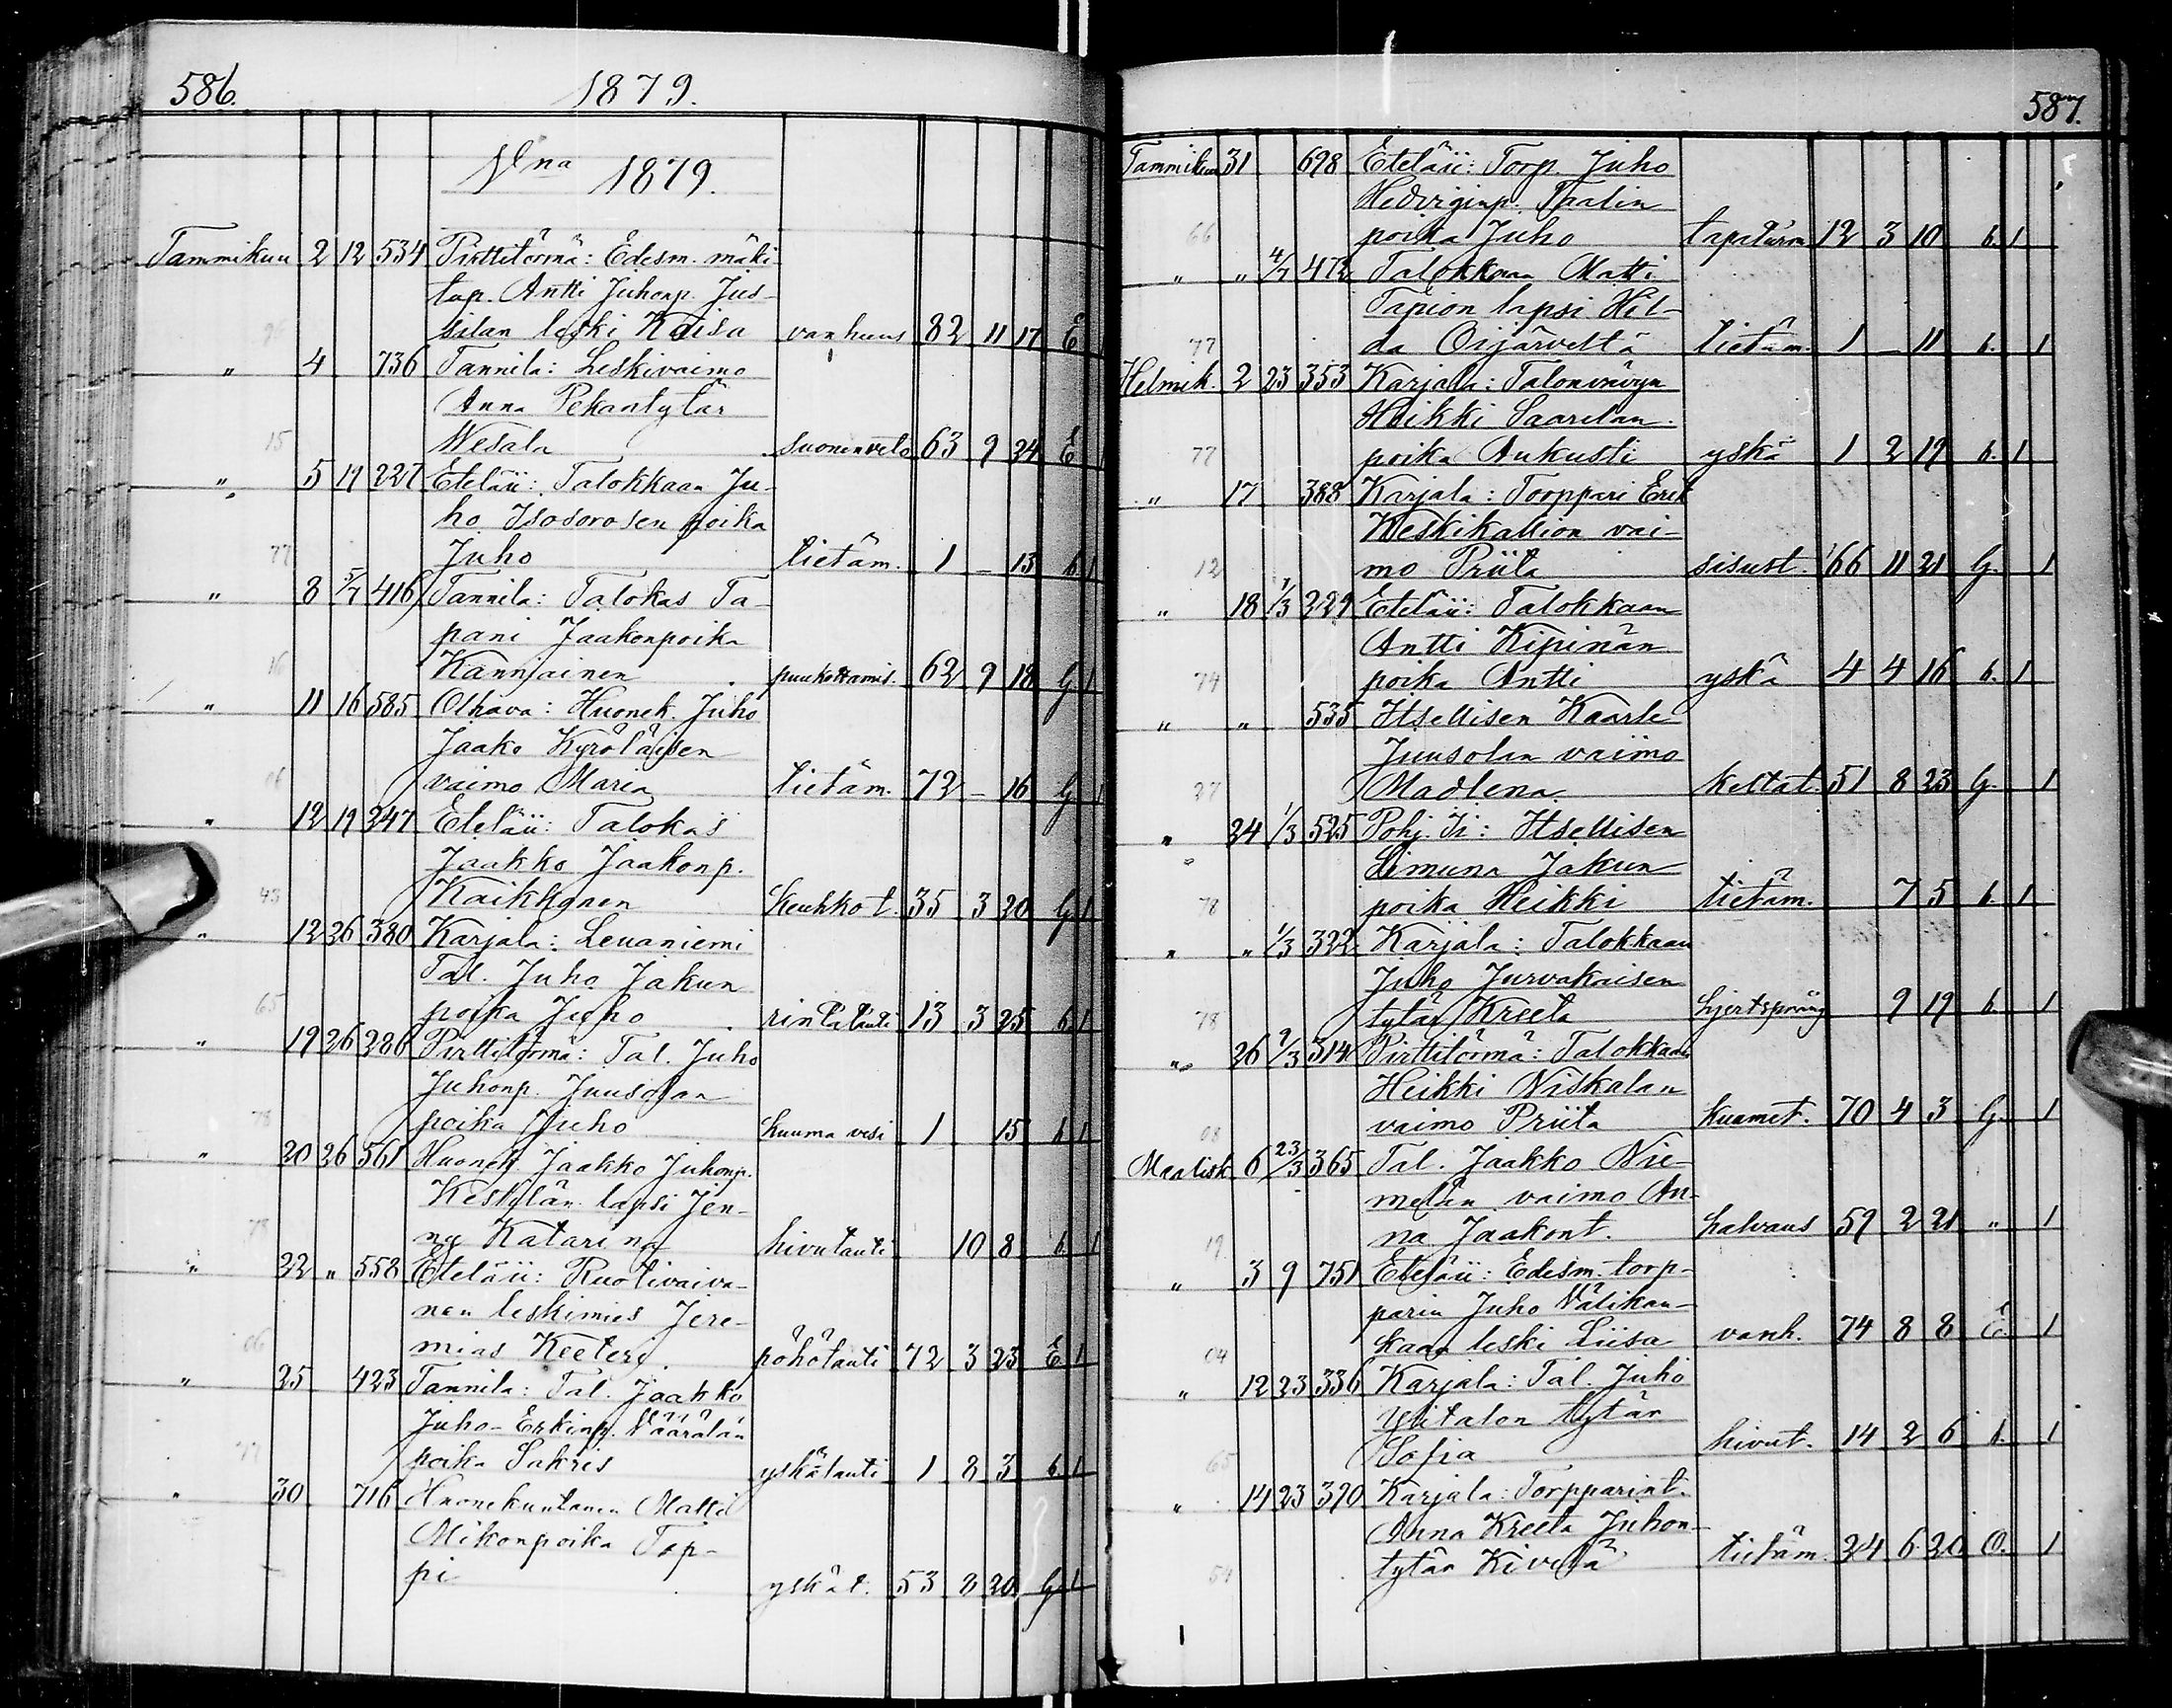 586.
1879.
Vna 1879.
Tammikuu 2 12 534 Pirttitörmä: Edesm. mäki-
tap. Antti Juhonp. Jus-
silan leski Kaisa vanhuus 82 11 17 E 1
" 4 736 Tannila: Leskivaimo
Anna Pekantytär
15 Wesala suonenveto 63 9 24 E 1
" 5 19 227 Eteläii: Talokkaan Ju-
ho Isosorosen poika
77 Juho tietäm. 1 – 13 b. 1
" 8 5/7 416 Tannila: Talokas Ta-
pani Jaakonpoika
16 Kanniainen puukottamis. 62 9 18 G 1
" 11 16 585 Olhava: Huonek. Juho
Jaako Kyröläisen
06 vaimo Maria tietäm. 72 – 16 G 1
" 12 19 247 Eteläii: Talokas
Jaakko Jaakonp.
43 Kaikkonen keuhkot. 35 3 20 G 1
" 12 26 380 Karjala: Leuaniemi
Tal. Juho Jakun
65 poika Juho rintatauti 13 3 25 b. 1
" 19 26 286 Pirttitörmä: Tal. Juho
Juhonp. Juusolan
78 poika Juho kuuma vesi 1 15 b. 1
" 20 26 561 Huonek. Jaakko Juhonp.
Keskilän lapsi Jen-
78 ny Katarina hivutauti 10 8 b. 1
" 22 " 558 Eteläii: Ruotivaiva-
nen leskimies Jere-
06 mias Keeteri pöhötauti 72 3 23 E 1
" 25 423 Tannila: Tal. Jaakko
Juho-Erkinp. Väärälän
77 poika Sakris yskätauti 1 8 3 b. 1
" 30 716 Huonekuntanen Matti
Mikonpoika Tap-
pi yskät. 53 8 20 G 1
587.
Tammikuu 31 698 Eteläii: Torp. Juho
Hedviginp. Paalin
66 poika Juho tapaturm. 12 3 10 b. 1
" " 4/7 472 Talokkaan Matti
Tapion lapsi Hil-
77 da Oijärveltä tietäm. 1 – 11 b. 1
Helmik. 2 23 353 Karjala: Talonvävyn
Heikki Saarelan
77 poika Aukusti yskä 1 2 19 b. 1
" 17 388 Karjala: Torppari Erik
Keskikallion vai-
12 mo Priita sisust. 66 11 21 G. 1
" 18 1/3 229 Eteläii: Talokkaan
Antti Kipinän
74 poika Antti yskä 4 4 16 b. 1
" " 535 Itsellisen Kaarle
Juusolan vaimo
27 Madlena keltat. 51 8 23 G. 1
" 24 1/3 525 Pohj. Ii: Itsellisen
Simuna Jakun
78 poika Heikki tietäm. 7 5 b. 1
" " 1/3 322 Karjala: Talokkaan
Juho Jurvakaisen
78 tytär Kreeta hjertspräng 9 19 b. 1
" 26 2/3 314 Pirttitörmä: Talokkaan
Heikki Niskalan
08 vaimo Priita kuumet. 70 4 3 G. 1
Maalisk. 6 23/3 365 Tal. Jaakko Nie-
melän vaimo An-
19 na Jaakont. halvaus 59 2 21 " 1
" 3 9 751 Eteläii: Edesm. torp-
parin Juho Välikan-
04 kaan leski Liisa vanh. 74 8 8 E. 1
" 12 23 336 Karjala: Tal. Juho
Ylitalon tytär
65 Sofia hivut. 14 2 6 b. 1
" 14 23 390 Karjala: Torpparint.
Anna Kreeta Juhon-
54 tytär Kivelä tietäm. 24 6 20 O. 1